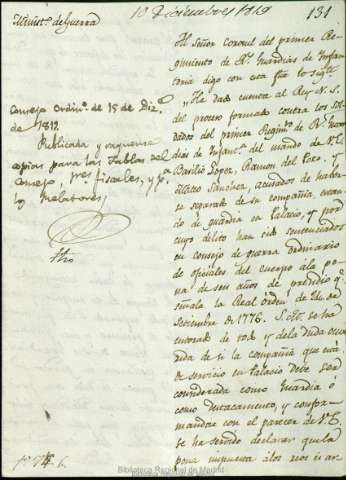 Minist.º de Guerra
10 Diciembre 1819
131
Al Señor Coronel del primer Re-
gimiento de R.s Guardias de Infan-
tería digo con esta fha lo sig.te
"He dado cuenta al Rey N. S.
del proceso formado contra los sol-
dados del primer Regim.to de R.s Guar-
dias de Infant.a del mando de V.E.
Basilio Lopez, Ramon del Pozo, y
Mateo Sanchez, acusados de haber-
se separado de su compañia estan-
do de guardia en Palacio, y por
cuyo delito han sido sentenciados
en consejo de guerra ordinario
de oficiales del cuerpo á la pe-
na de seis años de presidio q.e
señala la Real orden de
de 1776. S. M. se ha
enterado de todo y de la duda ocur-
rida de si la compañia que está
de servicio en Palacio debe ser
considerada como Guardia ó
como destacamento, y confor-
mandose con el parecer de V.E.
se ha servido declarar que la
pena impuesta á los reos es ar-
Consejo Ordin.º de 15 de Diz.e
de
Publicada y
copias para las Salas del
Consejo, tres fiscales, y p.a
los Relatores
Biblioteca Regional de Madrid